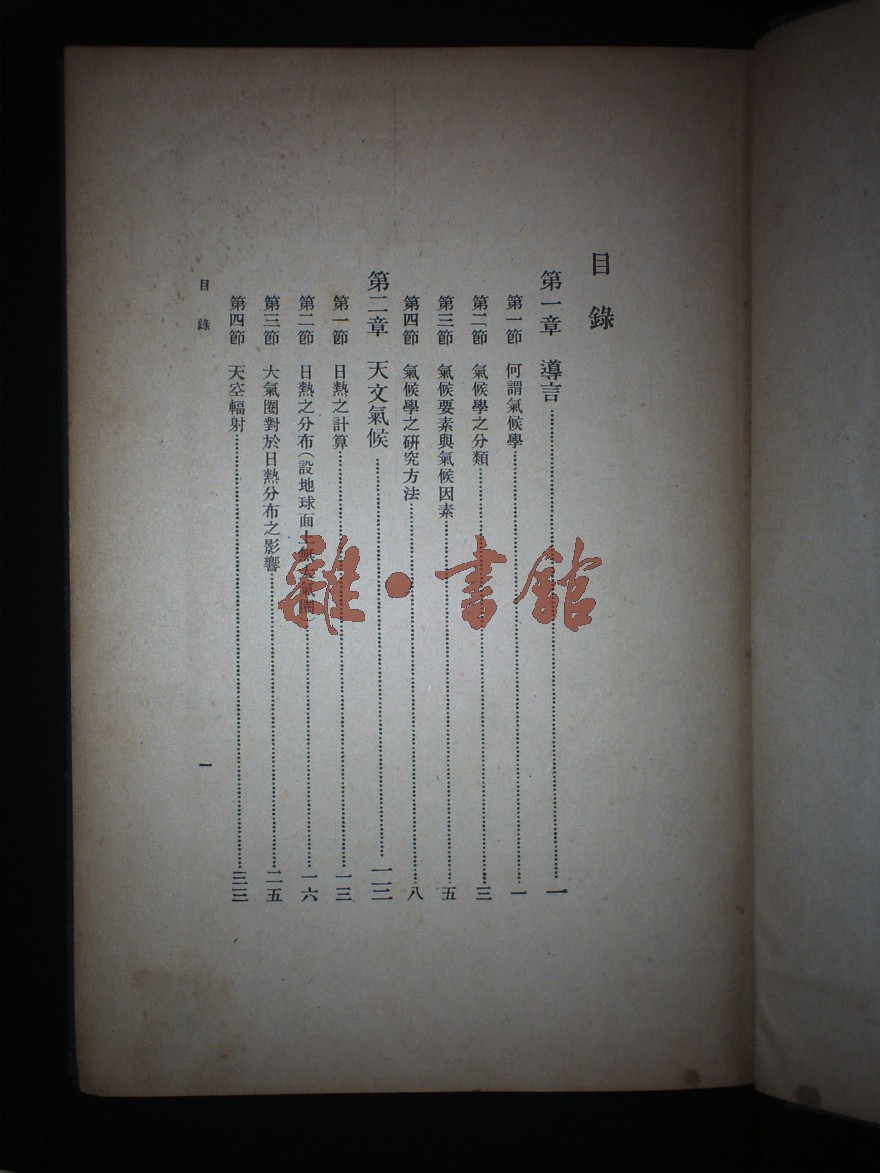 目錄
第一章 導言…一
第一節 何謂氣候學…一
第二節 氣候學之分類…三
第三節 氣候要素與氣候因素…五
第四節 氣候學之研究方法…八
第二章 天文氣候…一三
第一節 日熱之計算…一三
第二節 日熱之分布(設地球面上無大氣圈)…一六
第三節 大氣圈對於日熱分布之影響…二五
第四節 天空輻射…三三
目錄
一
雜·書館